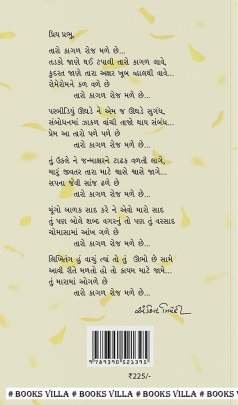 પ્રિય પ્રભુ,
તારો કાગળ રોજ મળે છે...
તડકો જાણે થઈ ટપાલી તારો કાગળ લાવે,
કુદરત જાણે તારા અક્ષર ખુબ વ્હાલથી વાવે...
રોમેરોમને કળ વળે છે
તારો કાગળ રોજ મળે છે...
પરબીડિયું ઊઘડે ને એમ જ ઊઘડે સુગંધ,
સંબોધનમાં ઝાકળ વાંચી તાજો થાય સંબંધ...
પ્રેમ આ તારો પળે પળે છે
તારો કાગળ રોજ મળે છે...
તું ઉકલે ને જન્માક્ષરને ટાઢક વળતી લાગે,
થાયું જીવતર તારા માટે શ્વાસે શ્વાસે જાગે...
સપના જેવી સાંજ ઢળે છે
તારો કાગળ રોજ મળે છે...
મૂંગો બાળક સાદ કરે ને એવો મારો સાદ
તું પણ બોલે શબ્દ વગરનું તો પણ તું વરસાદ
ચોમાસામાં આંખ ગળે છે
તારો કાગળ રોજ મળે છે...
લિખિતંગ તું વાચું ત્યાં તો તું ઊભો છે સામે
આવી રીતે મળતો હો તો કાયમ માટે જામે...
તું મારામાં ઓગળે છે
તારો કાગળ રોજ મળે છે...
અંકિત ત્રિવેદી
9789390521395
₹225/-
# BOOKS VILLA # BOOKS VILLA # BOOKS VILLA # BOOKS VILLA #